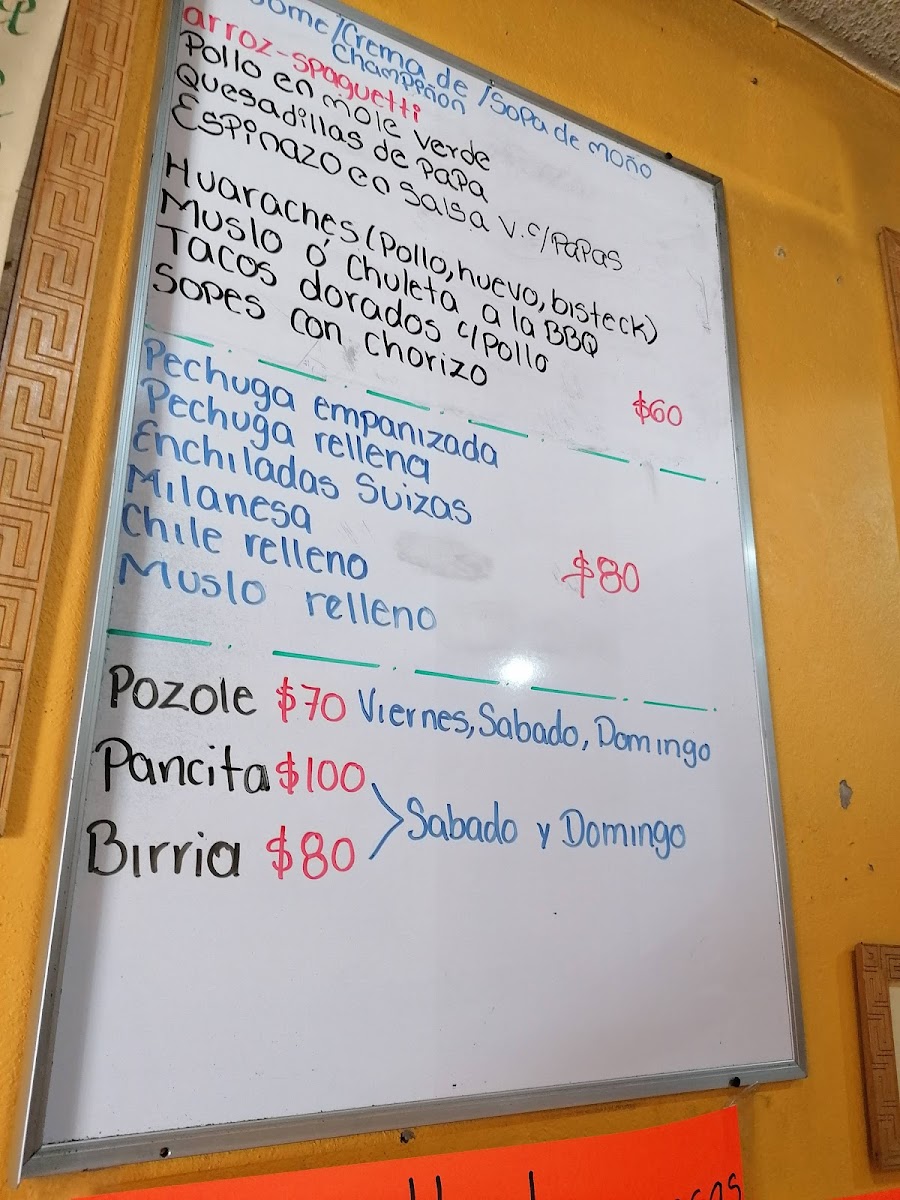 /Crema de /Sopa de moño
Champiñon
arroz-spaguetti
Pollo en mole verde
Quesadillas de Papa
Espinazo en Salsa v. c/PaPas
Huaraches (Pollo, huevo, bisteck)
Muslo ó chuleta a la BBQ
Tacos dorados c/Pollo
Sopes con chorizo
$60
Pechuga empanizada
Pechuga rellena
Enchiladas Suizas
Milanesa
Chile relleno
$80
Muslo relleno
Pozole $70 Viernes, Sabado, Domingo
Pancita $100
Sabado y Domingo
Birria $80